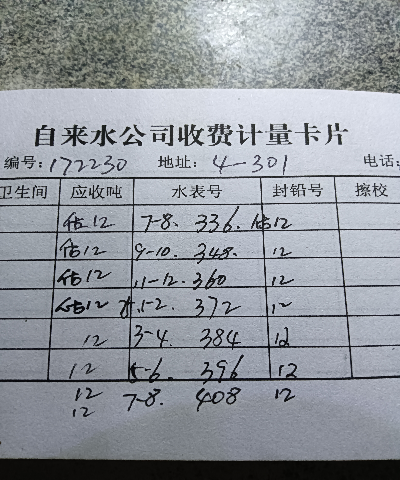 自来水公司收费计量卡片
编号:172230 地址: 4-301 电话:
卫生间 应收吨 水表号 封铅号 擦校
估12 7-8. 336. 估12
估12 9-10. 348. 12
估12 11-12. 360 12
估12 1-2. 372 12
12 3-4. 384 12
12 5-6. 396 12
12 7-8. 408 12
12